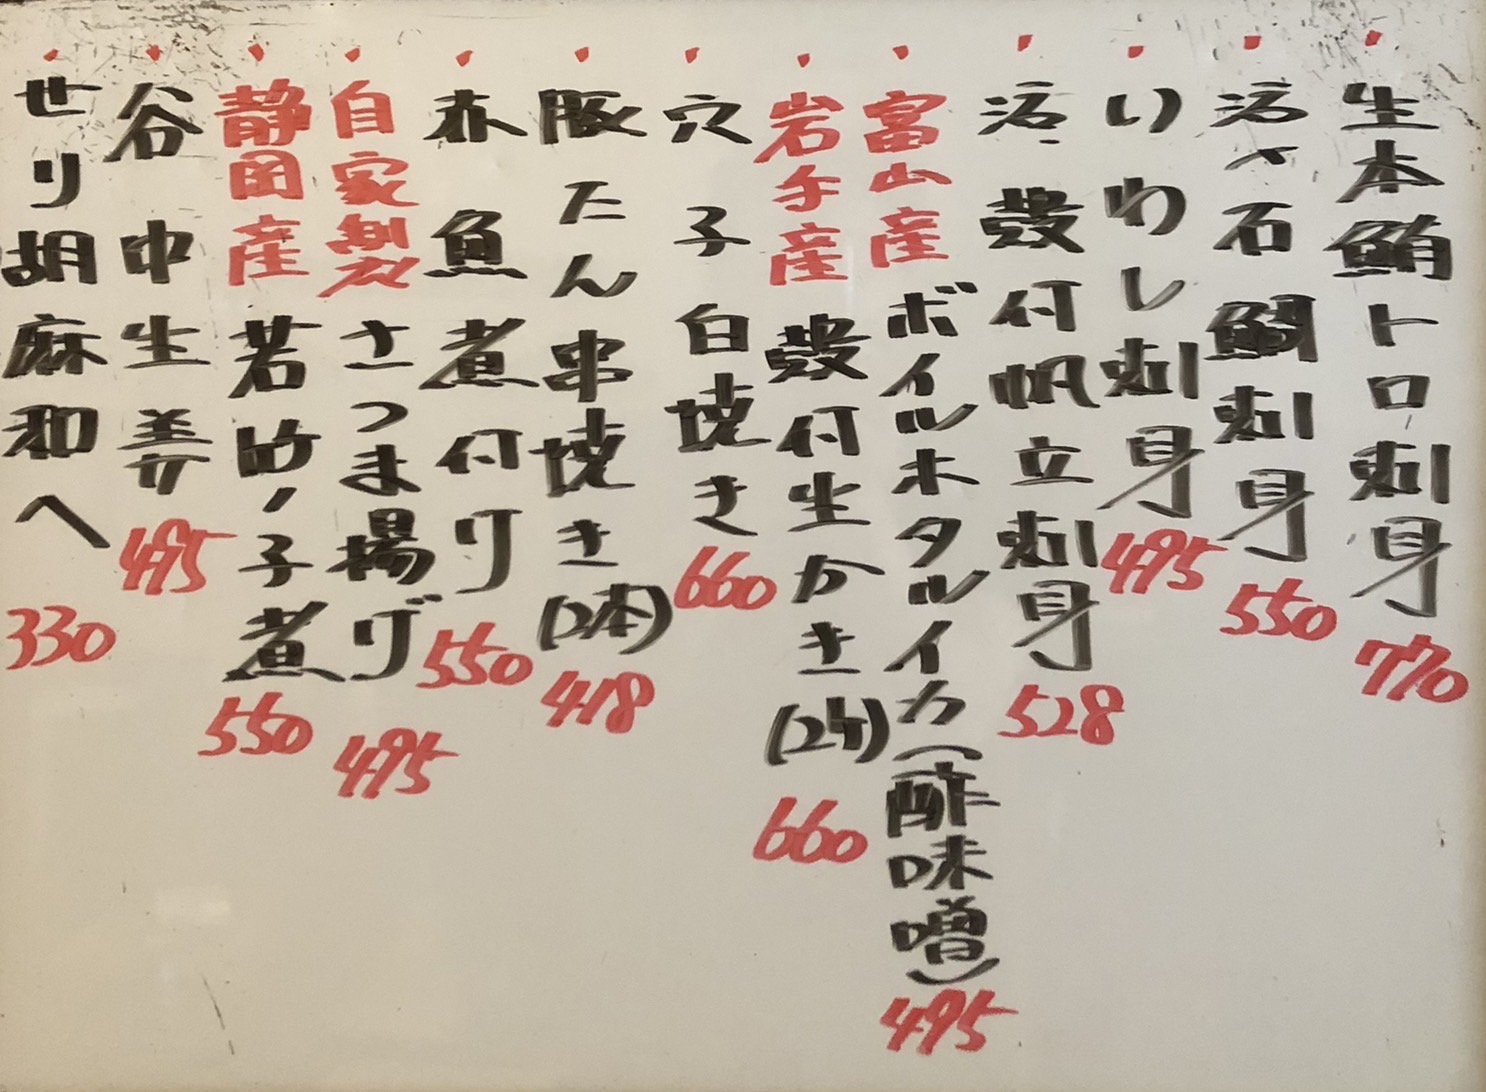 生本鮪トロ刺身 770
活〆石鯛刺身 550
いわし刺身 495
活殻付帆立刺身 528
富山産ボイルホタルイカ(酢味噌) 495
岩手産殻付生かき(2ケ) 660
穴子白焼き 660
豚たん串焼き(2本) 418
赤魚煮付け 550
自家製さつま揚げ 495
静岡産若竹ノ子煮 550
谷中生姜 495
せり胡麻和へ 330